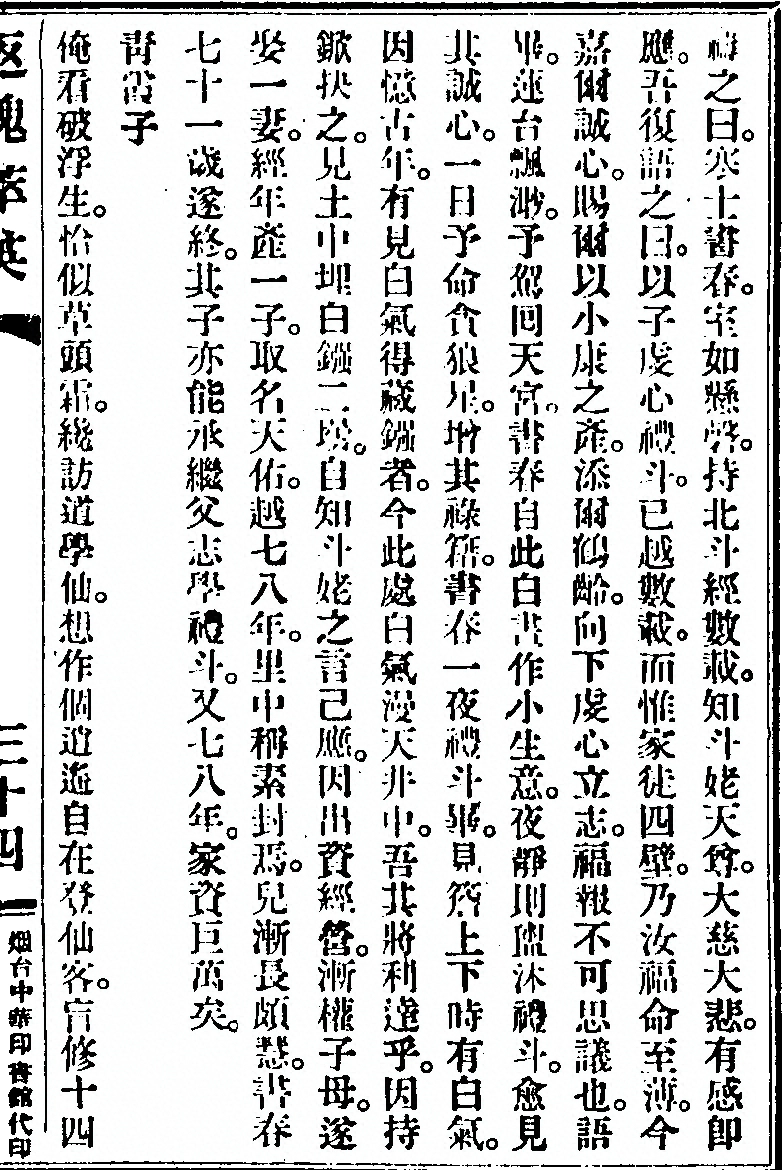 禱之曰。寒士書春。室如懸磬。持北斗經數載。知斗姥天尊。大慈大悲。有感即
應。吾復語之曰。以子虔心禮斗。已越數載。而惟家徒四壁。乃汝福命至薄。今
嘉爾誠心。賜爾以小康之產。添爾鶴齡。向下虔心立志。福報不可思議也。語
畢。蓮台飄渺。予駕回天宮。書春自此白晝作小生意。夜靜則盥沐禮斗。愈見
其誠心。一日予命貪狼星。增其祿籍。書春一夜禮斗畢。見窖上下時有白氣。
因憶古年。有見白氣得藏鏹者。今此處白氣漫天井中。吾其將利達乎。因持
鍬抉之。見土中埋白鏹二罈。自知斗姥之言已應。因出資經營。漸權子母。遂
娶一妻。經年產一子。取名天佑。越七八年。里中稱素封焉。兒漸長頗慧。書春
七十一歲遂終。其子亦能承繼父志學禮斗。又七八年。家資巨萬矣。
青雷子
俺看破浮生。恰似草頭霜。纔訪道學仙。想作個逍遙自在登仙客。官修十四
返魂萃英
三十四
烟台中華印書館代印